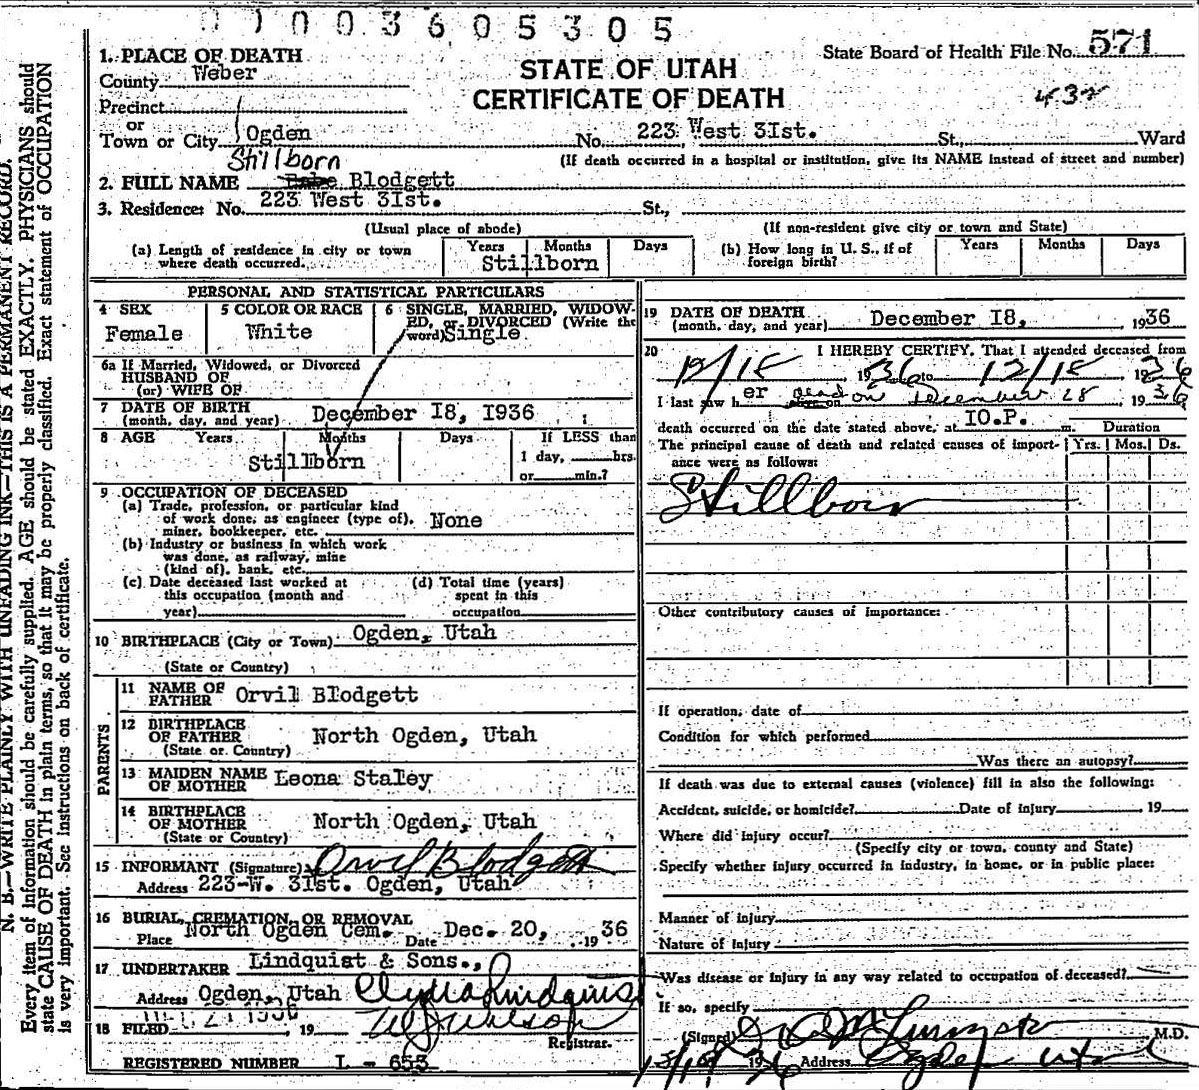 01003605305
1. PLACE OF DEATH
County Weber
Precinct
or
Town or City Ogden
STATE OF UTAH
CERTIFICATE OF DEATH
State Board of Health File No. 571
432
No. 223 West 3Ist. St., Ward
(If death occurred in a hospital or institution, give its NAME instead of street and number)
Stillborn
2. FULL NAME Babe Blodgett
3. Residence: No. 223 West 3Ist. St.,
(Usual place of abode) (If non-resident give city or town and State)
(a) Length of residence in city or town where death occurred. Years Months Days
Stillborn
(b) How long in U. S., if of foreign birth? Years Months Days
PERSONAL AND STATISTICAL PARTICULARS
4 SEX
Female
5 COLOR OR RACE
White
6 SINGLE, MARRIED, WIDOW-
ED, or DIVORCED (Write the
word) Single
6a If Married, Widowed, or Divorced
HUSBAND OF
(or) WIFE OF
7 DATE OF BIRTH
(month, day, and year) December I8, I936
8 AGE Years Months Days If LESS than
1 day, hrs.
or min.?
Stillborn
9 OCCUPATION OF DECEASED
(a) Trade, profession, or particular kind
of work done, as engineer (type of),
miner, bookkeeper, etc. None
(b) Industry or business in which work
was done, as railway, mine
(kind of), bank, etc.
(c) Date deceased last worked at
this occupation (month and
year)
(d) Total time (years)
spent in this
occupation
10 BIRTHPLACE (City or Town) Ogden, Utah
(State or Country)
PARENTS
11 NAME OF
FATHER Orvil Blodgett
12 BIRTHPLACE
OF FATHER North Ogden, Utah
(State or Country)
13 MAIDEN NAME
OF MOTHER Leona Staley
14 BIRTHPLACE
OF MOTHER North Ogden, Utah
(State or Country)
15 INFORMANT (Signature) Orvil Blodgett
Address 223-W. 3Ist. Ogden, Utah
16 BURIAL, CREMATION, OR REMOVAL
Place North Ogden Cem. Date Dec. 20, 19 36
17 UNDERTAKER Lindquist & Sons.,
Address Ogden, Utah
18 FILED 19
Registrar.
REGISTERED NUMBER L - 653
19 DATE OF DEATH
(month, day, and year) December I8, 1936
20 I HEREBY CERTIFY, That I attended deceased from
12/18 1936 to 12/18 1936
I last saw h er alive on dead on December 28, 1936
death occurred on the date stated above, at IO.P. m.
The principal cause of death and related causes of import-
ance were as follows:
Duration
Yrs. Mos. Ds.
Stillborn
Other contributory causes of importance:
If operation, date of
Condition for which performed
Was there an autopsy?
If death was due to external causes (violence) fill in also the following:
Accident, suicide, or homicide? Date of injury 19
Where did injury occur?
(Specify city or town, county and State)
Specify whether injury occurred in industry, in home, or in public place:
Manner of injury
Nature of injury
Was disease or injury in any way related to occupation of deceased?
If so, specify
(Signed) M.D.
19 36 Address Ogden Utah
N. B.—WRITE PLAINLY WITH UNFADING INK—THIS IS A PERMANENT RECORD.
Every item of information should be carefully supplied. AGE should be stated EXACTLY. PHYSICIANS should
state CAUSE OF DEATH in plain terms, so that it may be properly classified. Exact statement of OCCUPATION
is very important. See instructions on back of certificate.